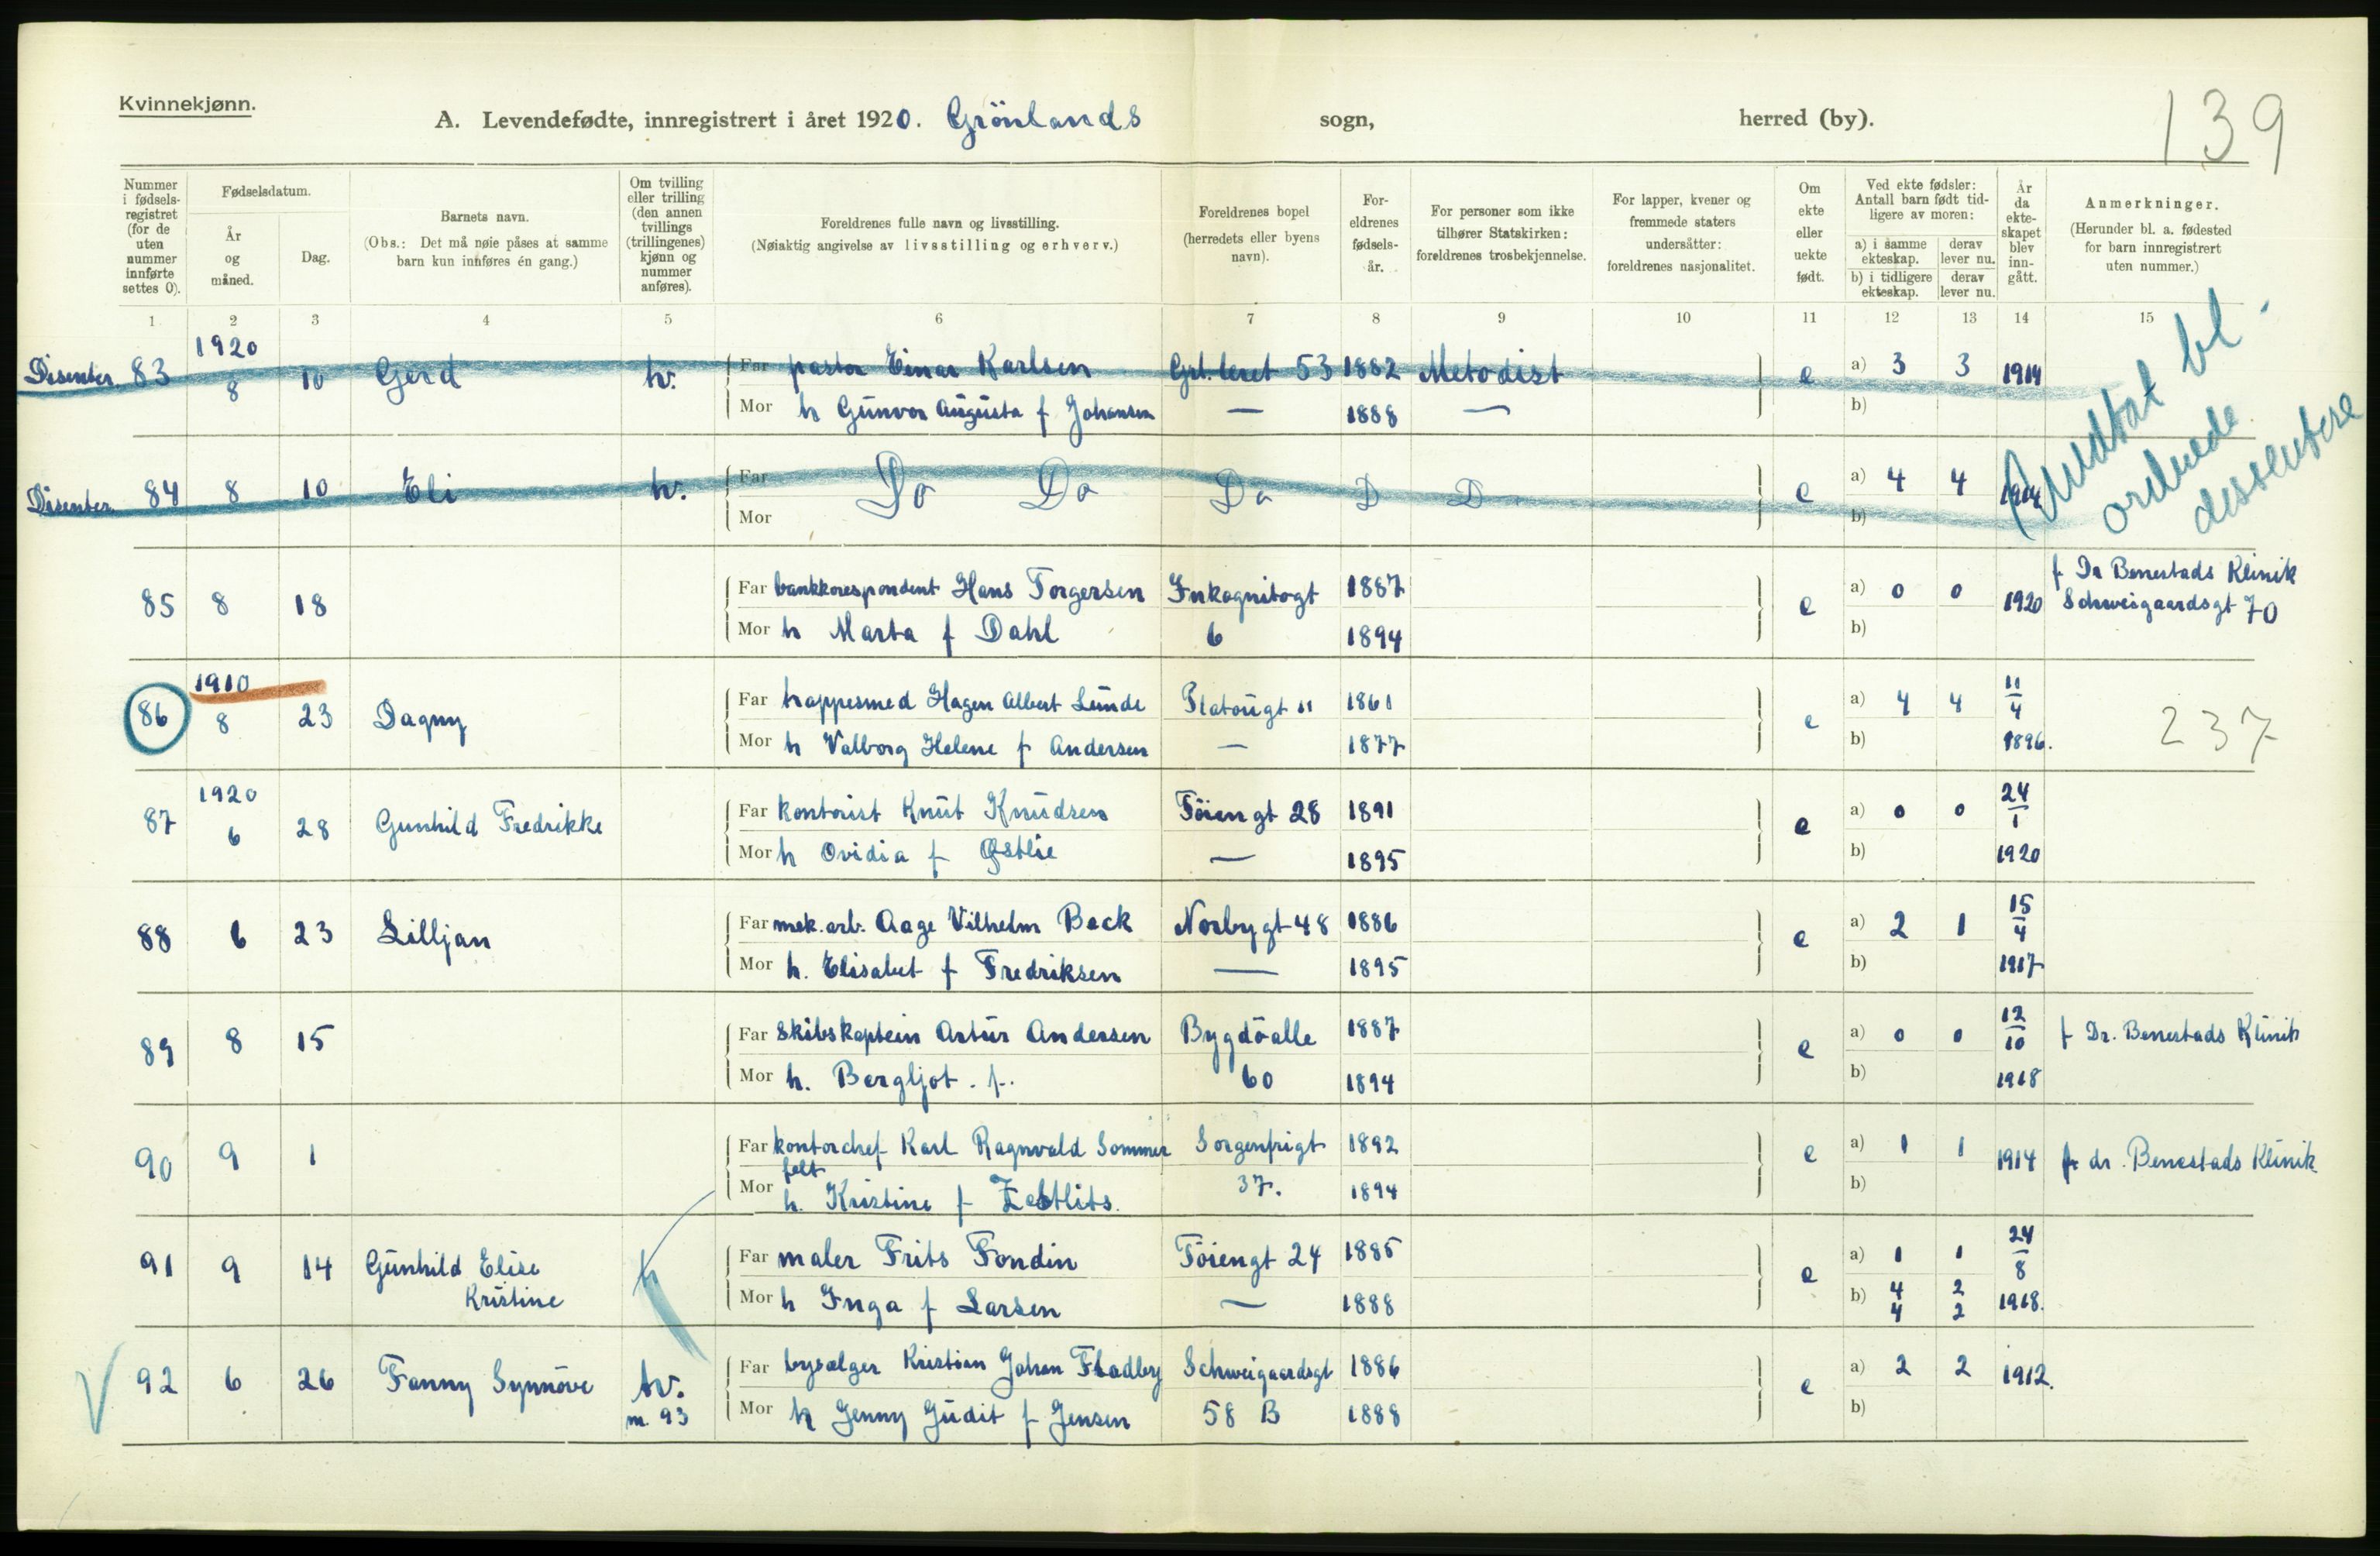 Kvinnekjønn.
A. Levendefødte, innregistrert i året 1920. Grönlands sogn, herred (by).
139
Nummer i fødselsregistret (for de uten nummer innførte settes 0).
Fødselsdatum.
År og måned.
Dag.
Barnets navn.
(Obs.: Det må nøie påses at samme barn kun innføres én gang.)
Om tvilling eller trilling (den annen tvillings (trillingenes) kjønn og nummer anføres).
Foreldrenes fulle navn og livsstilling.
(Nøiaktig angivelse av livsstilling og erhverv.)
Foreldrenes bopel (herredets eller byens navn).
Foreldrenes fødselsår.
For personer som ikke tilhører Statskirken: foreldrenes trosbekjennelse.
For lapper, kvener og fremmede staters undersåtter: foreldrenes nasjonalitet.
Om ekte eller uekte født.
Ved ekte fødsler: Antall barn født tidligere av moren:
a) i samme ekteskap. derav lever nu.
b) i tidligere ekteskap. derav lever nu.
År da ekteskapet blev inngått.
Anmerkninger.
(Herunder bl. a. fødested for barn innregistrert uten nummer.)
1 2 3 4 5 6 7 8 9 10 11 12 13 14 15
Disenter. 83 1920 8 10 Gerd tv. Far pastor Einar Karlsen Grl. leret 53 1882 Metodist e a) 3 3 1914
Mor h Gunvor Augusta f Johansen — 1888 — b)
Disenter. 84 8 10 Eli tv. Far Do Do Do D D e a) 4 4 1914
Mor b)
bl. ordnede dissentere
85 8 18 Far bankkorespondent Hans Torgersen Inkognitogt 1887 e a) 0 0 1920 f Dr Benestads Klinik
Mor h Marta f Dahl 6 1894 b) Schweigaardsgt 70
86 1910 8 23 Dagny Far trappesmed Hagen Albert Lunde Platougt 11 1861 e a) 4 4 11/4
Mor h Valborg Helene f Andersen — 1877 b) 1896. 237
87 1920 6 28 Gunhild Fredrikke Far kontorist Knut Knudsen Töiengt 28 1891 e a) 0 0 24/1
Mor h Ovidia f Østlie — 1895 b) 1920
88 6 23 Lilljan Far mek. arb. Aage Vilhelm Beck Norbygt 48 1886 e a) 2 1 15/4
Mor h. Elisabet f Fredriksen — 1895 b) 1917
89 8 15 Far Skibskaptein Artur Andersen Bygdöalle 1887 e a) 0 0 12/10 f Dr. Benestads Klinik
Mor h. Bergljot. f. 60 1894 b) 1918
90 9 1 Far kontorchef Karl Ragnvald Sommerfelt Sorgenfrigt 1892 e a) 1 1 1914 f dr. Benestads Klinik
Mor h. Kristine f Zetlits. 37. 1894 b)
91 9 14 Gunhild Elise Kristine h Far maler Frits Fondin Töiengt 24 1885 e a) 1 1 24/8
Mor h Inga f Larsen — 1888 b) 4 2 1918.
4 2
V 92 6 26 Fanny Synnöve tv. Far bysælger Kristian Johan Fladby Schweigaardsgt 1886 e a) 2 2 1912.
m. 93 Mor h Jenny Judit f Jensen 58 B 1888 b)